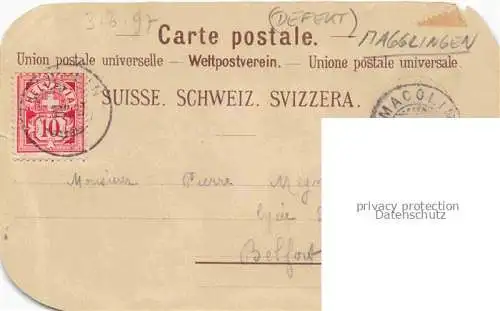 3.8.97 (DEFEKT)
Carte postale. — MAGGLINGEN
Union postale universelle — Weltpostverein. — Unione postale universale
SUISSE. SCHWEIZ. SVIZZERA.
HELVETIA
10
MACOLIN
Monsieur Pierre
privacy protection
Datenschutz
Belfort